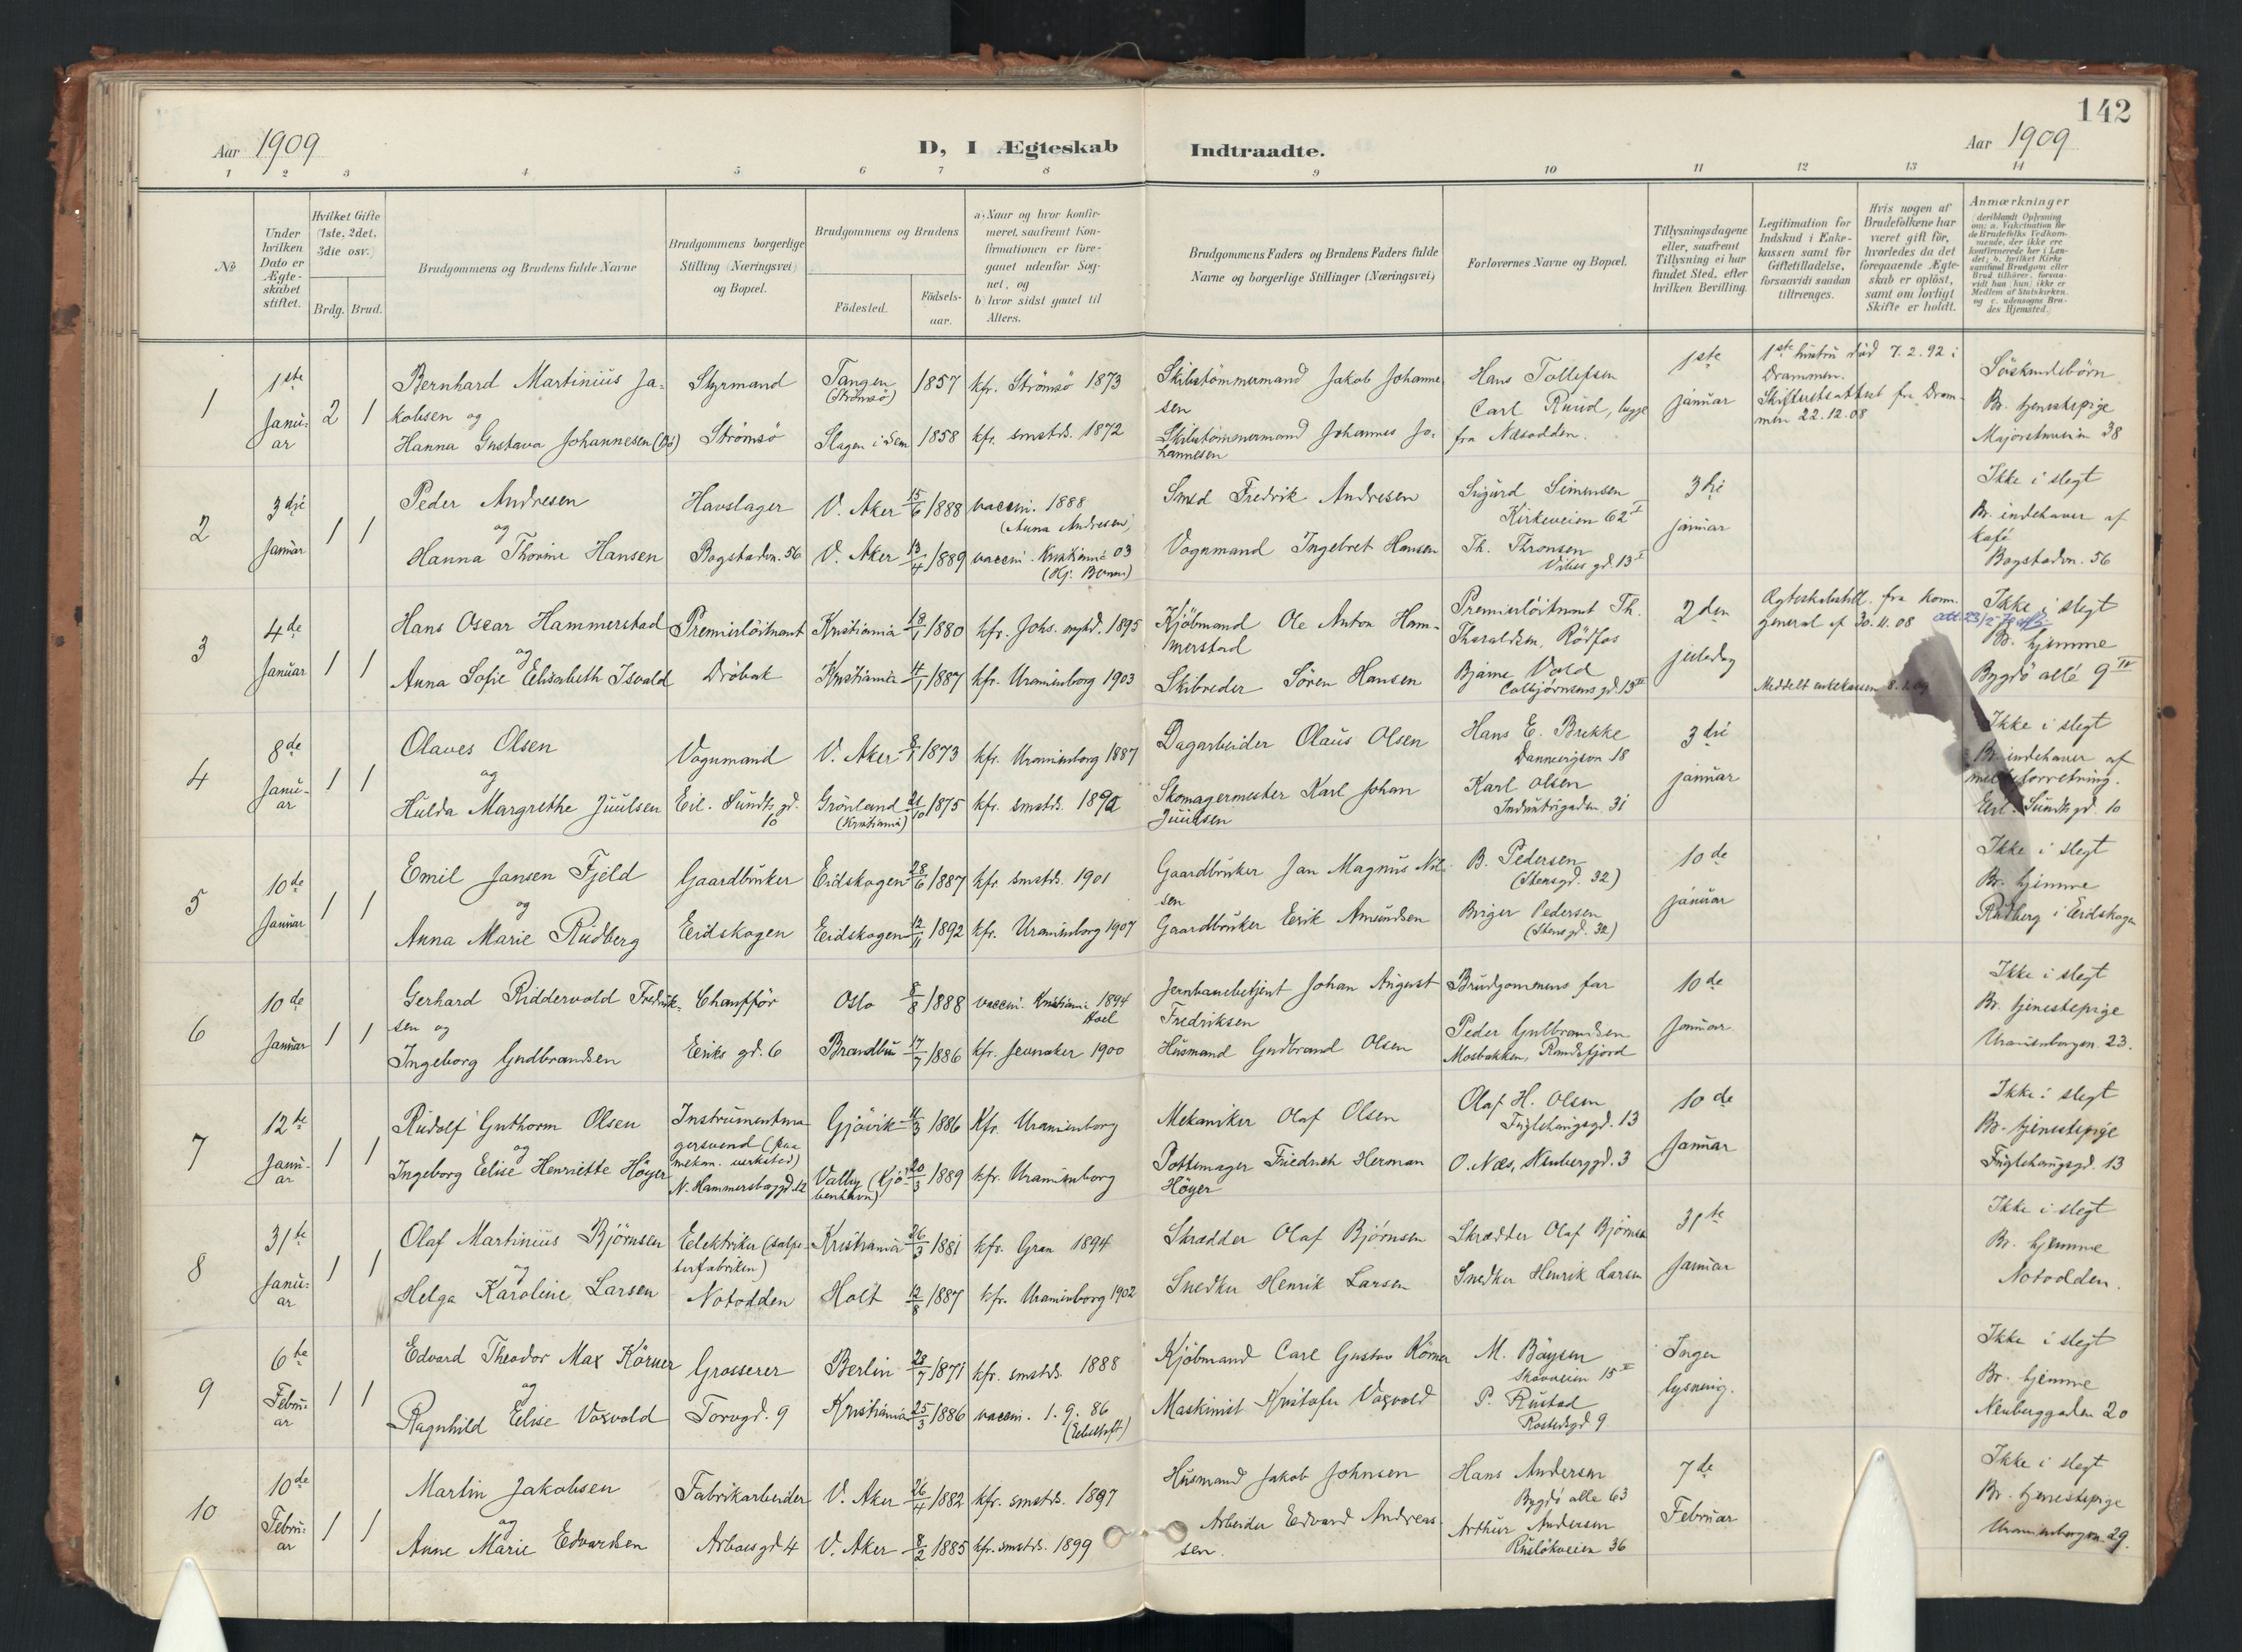 142
Aar 1909
D, I Ægteskab Indtraadte.
Aar 1909
1 2 3 4 5 6 7 8 9 10 11 12 13 14
No
Under hvilken Dato er Ægteskabet stiftet.
Hvilket Gifte (1ste, 2det, 3die osv.)
Brdg. Brud.
Brudgommens og Brudens fulde Navne
Brudgommens borgerlige Stilling (Næringsvei) og Bopæl.
Brudgommens og Brudens
Födested.
Födsels-aar.
a) Naar og hvor konfirmeret, saafremt Konfirmationen er foregaaet udenfor Sognet, og
b) hvor sidst gaaet til Alters.
Brudgommens Faders og Brudens Faders fulde Navne og borgerlige Stillinger (Næringsvei)
Forlovernes Navne og Bopæl.
Tillysningsdagene eller, saafremt Tillysning ei har fundet Sted, efter hvilken Bevilling.
Legitimation for Indskud i Enkekassen samt for Giftetilladelse, forsaavidt saadan tiltrænges.
Hvis nogen af Brudefolkene har været gift før, hvorledes da det foregaaende Ægteskab er oplöst, samt om lovligt Skifte er holdt.
Anmærkninger
(deriblandt Oplysning om: a. Vakcination for de Brudefolks Vedkommende, der ikke ere konfirmerede her i Landet; b. hvilket Kirkesamfund Brudgom eller Brud tilhörer, forsaavidt han (hun) ikke er Medlem af Statskirken, og c. udensogns Brudes Hjemsted.)
1 1ste Januar 2 1
Bernhard Martinius Jakobsen og
Hanna Gustava Johannesen
Styrmand Strömsö
Tangen (Strömsö) 1857 kfr. Strömsö 1873
Slagen i Sem 1858 kfr. smstds. 1872
Skibstömmermand Jakob Johannesen
Skibstömmermand Johannes Johannesen
Hans Tollefsen
Carl Ruud, begge fra Næsodden.
1ste januar
1ste hustru död 7.2.92 i Drammen.
Skifteretsattest fra Drammen 22.12.08
Söskendebörn
Br. tjenestepige
Majorstuveien 38
2 3die Januar 1 1
Peder Andresen
og
Hanna Thorine Hansen
Havslager Bogstadvn. 56
V. Aker 15/6 1888 vaccin. 1888 (Anna Andresen)
V. Aker 13/4 1889 vaccin. Kristiania 03
Smed Fredrik Andresen
Vognmand Ingebret Hansen
Sigurd Simensen
Kirkeveien 62 I
Th. Thronsen
Vibes gd. 13 I
3die januar
Ikke i slegt
Br. indehaver af kafé
Bogstadvn. 56
3 4de Januar 1 1
Hans Oscar Hammerstad
og
Anna Sofie Elisabeth Isvald
Premierlöitnant Dröbak
Kristiania 18/1 1880 kfr. Johs. mgtd. 1895
Kristiania 4/1 1887 kfr. Uranienborg 1903
Kjöbmand Ole Anton Hammerstad
Skibreder Sören Hansen
Premierlöitnant Th. Tharaldsen, Rödfos
Bjarne Vold
Colbjørnsens gd. 13 II
2den juledag
Ægteskabstill. fra Kom. general af 30.11.08
Meddelt enkekassen 8.1.09
Ikke i slegt
Br. hjemme
Bygdö allé 9 IV
4 8de Januar 1 1
Olaves Olsen
og
Hulda Margrethe Juulsen
Vognmand Eil. Sundts gd. 10
V. Aker 8/1 1873 kfr. Uranienborg 1887
Grönland (Kristiania) 21/10 1875 kfr. smstds.
Dagarbeider Olaus Olsen
Skomagermester Karl Johan Juulsen
Hans E. Brekke
Dannevigsvn 18
Karl Olsen
Industrigaden 31
3die januar
Ikke i slegt
Br. indehaver af melkeforretning.
Eil. Sundts gd. 10
5 10de Januar 1 1
Emil Jansen Fjeld
og
Anna Marie Rudberg
Gaardbruker Eidskogen
Eidskogen 28/6 1887 kfr. smstds. 1901
Eidskogen 12/11 1892 kfr. Uranienborg 1907
Gaardbruker Jan Magnus Nilsen
Gaardbruker Eerik Amundsen
B. Pedersen
(Stensgd. 32)
Birger Pedersen
(Stensgd. 32)
10de januar
Ikke i slegt
Br. hjemme
Rudberg i Eidskogen
6 10de Januar 1 1
Gerhard Riddervold Fredriksen og
Ingeborg Gudbrandsen
Chaufför Eeriks gd. 6
Oslo 8/8 1888 vaccin. Kristiania 1894
Brandbu 17/7 1886 kfr. Jevnaker 1900
Jernbanebetjent Johan August Fredriksen
Husmand Gudbrand Olsen
Brudgommens far
Peder Gulbrandsen
Mosbakken, Randsfjord
10de Januar
Ikke i slegt
Br. tjenestepige
Uranienborgvn. 23.
7 12te Januar 1 1
Rudolf Guthorm Olsen
og
Ingeborg Eelise Henriette Höyer
Instrumentmagersvend (paa mekan. verksted)
N. Hammersborggd. 12
Gjövik 11/3 1886 Kfr. Uranienborg
Valby (Kjöbenhavn) 20/3 1889 kfr. Uranienborg
Mekaniker Olaf Olsen
Pottemager Friedrich Herman Höyer
Olaf H. Olsen
Fuglehaugsgd. 13
O. Næs, Neuberggd. 3
10de Januar
Ikke i slegt
Br. tjenestepige
Fuglehaugsgd. 13
8 31te Januar 1 1
Olaf Martinius Björnsen
og
Helga Karoline Larsen
Eelektriker (salpeterfabriken)
Notodden
Kristiania 26/3 1881 kfr. Gran 1894
Holt 12/8 1887 kfr. Uranienborg 1902
Skrædder Olaf Bjørnsen
Snedker Henrik Larsen
Skrædder Olaf Bjørnsen
Snedker Henrik Larsen
31te Januar
Ikke i slegt
Br. hjemme
Notodden.
9 6te Februar 1 1
Edvard Theodor Max Körner
og
Ragnhild Eelise Voxvold
Grosserer Torvgd. 9
Berlin 28/7 1871 kfr. smstds. 1888
Kristiania 25/3 1886 vaccin. 1.9.86
Kjöbmand Carl Gustav Körner
Maskinist Kristofer Voxvold
M. Böysen
Skovveien 15 II
P. Rustad
Rostedsgd 9
Ingen lysning.
Ikke i slegt
Br. hjemme
Neuberggaden 20
10 10de Februar 1 1
Martin Jakobsen
og
Anne Marie Edvardsen
Fabrikarbeider Arboesgd 4
V. Aker 26/4 1882 kfr. smstds. 1897
V. Aker 8/2 1885 kfr. smstds. 1899
Husmand Jakob Johnsen
Arbeider Eedvard Andreassen.
Hans Andersen
Bygdö alle 63
Arthur Andersen
Ruslökveien 36
7de Februar
Ikke i slegt
Br. tjenestepige
Uranienborgvn. 29.